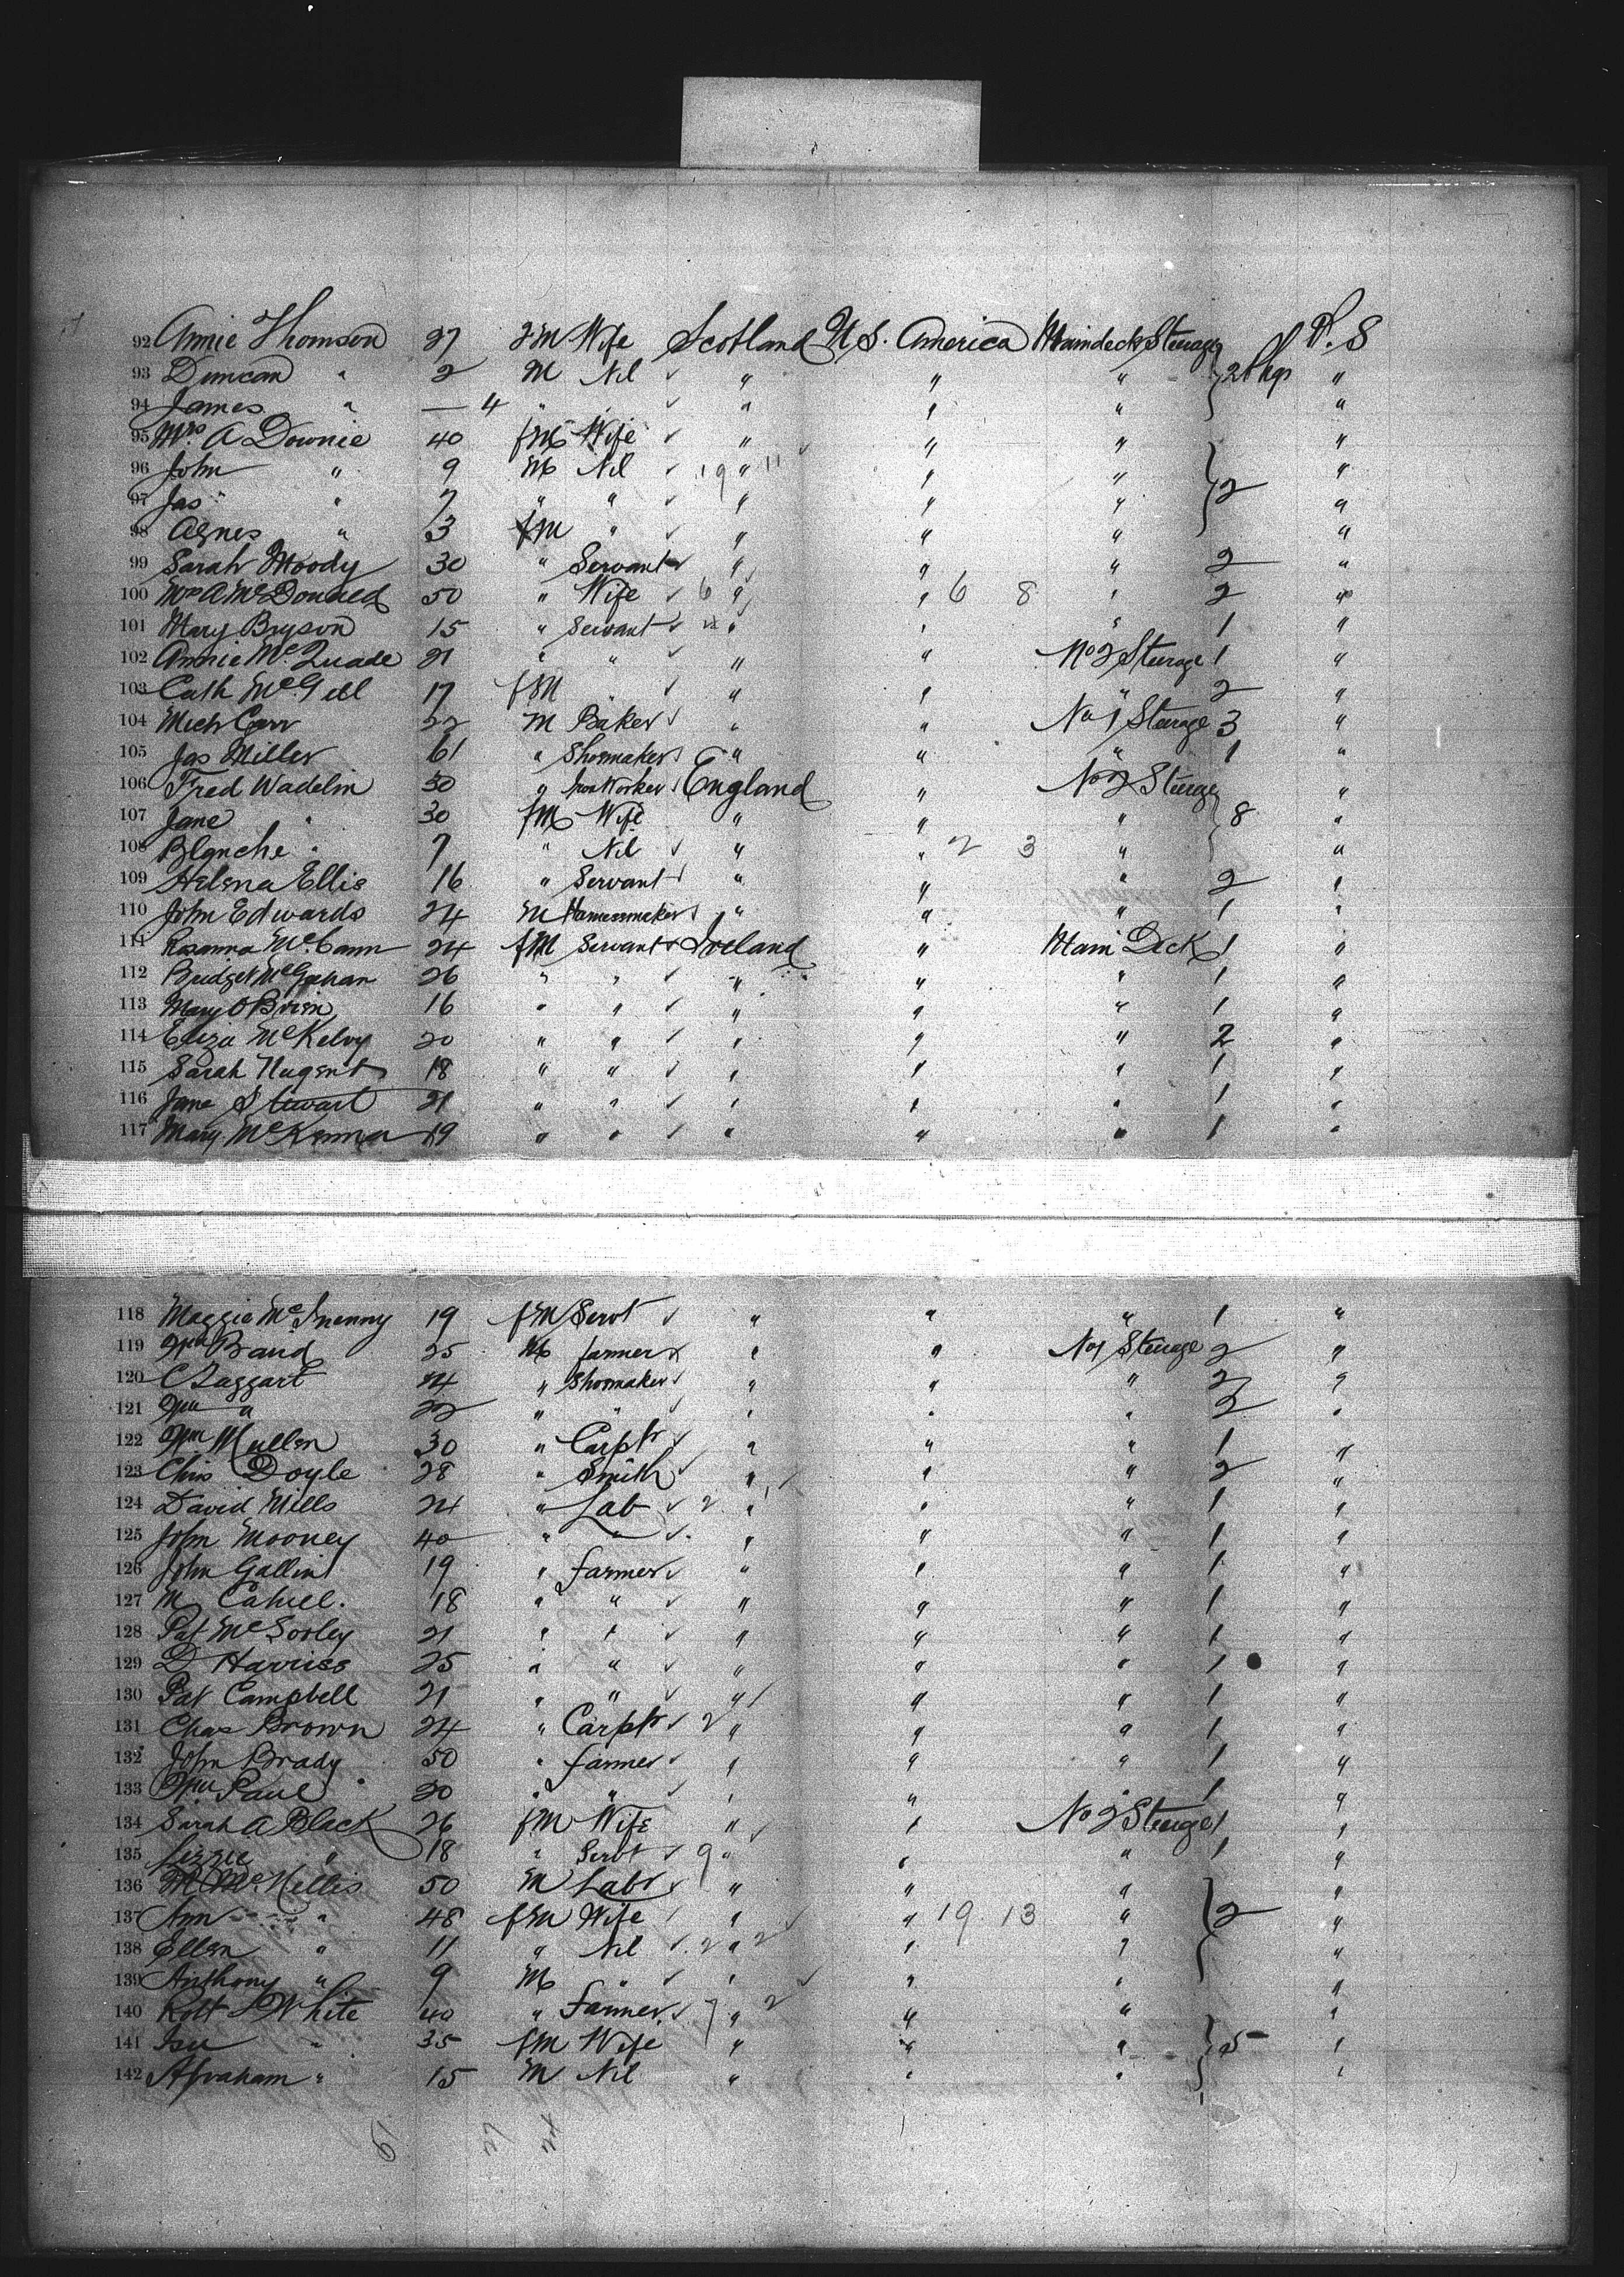 92 Annie Thomson 27 FM Wife Scotland U S. America Maindeck Steerage 2 Pkgs P. S
93 Duncan " 2 M Nil " " " "
94 James " — 4 " " " " " "
95 Mrs. A Downie 40 fM Wife " " " "
96 John " 9 M Nil 19 " 11 " " 2 "
97 Jas " 7 " " " " " "
98 Agnes " 3 fM " " " " "
99 Sarah Moody 30 " Servant " " " 2 "
100 Mrs A McDonald 50 " Wife 6 " " 6 8 " 2 "
101 Mary Bryson 15 " Servant " " " 1 "
102 Annie McQuade 21 " " " " No 2 Steerage 1 "
103 Cath McGill 17 fM " " " " 2 "
104 Mich Carr 22 M Baker " " No 1 Steerage 3 "
105 Jas Miller 61 " Shoemaker " " " 1 "
106 Fred Wadelin 30 " Iron Worker England " No 2 Steerage "
107 Jane " 30 fM Wife " " " 8 "
108 Blanche " 7 " Nil " " 2 3 " "
109 Helena Ellis 16 " Servant " " " 2 "
110 John Edwards 24 M Harnessmaker " " " 1 "
111 Rosanna McCann 24 fM Servant Ireland " Main Deck 1 "
112 Bridget McGahan 26 " " " " " 1 "
113 Mary O'Brien 16 " " " " " 1 "
114 Eliza McKelvy 20 " " " " " 2 "
115 Sarah Nugent 18 " " " " " 1 "
116 Jane Stewart 21 " " " " " 1 "
117 Mary McKenna 19 " " " " " 1 "
118 Maggie McInenny 19 fM Servt " " " 1 "
119 Wm Baird 25 M farmer " " No 1 Steerage 2 "
120 C Taggart 24 " Shoemaker " " " 2 "
121 Wm " 22 " " " " " 2 "
122 Wm Mullen 30 " Carptr " " " 1 "
123 Chris Doyle 28 " Smith " " " 2 "
124 David Mills 24 " Lab 2 " " " 1 "
125 John Mooney 40 " " " " " 1 "
126 John Gallin 19 " farmer " " " 1 "
127 M Cahill. 18 " " " " " 1 "
128 Pat McSorley 21 " " " " " 1 "
129 D Harriss 25 " " " " " 1 "
130 Pat Campbell 21 " " " " " 1 "
131 Chas Brown 24 " Carptr 2 " " " 1 "
132 John Brady 50 " farmer " " " 1 "
133 Wm Paul 20 " " " " " 1 "
134 Sarah A Black 26 fM Wife " " No 2 Steerage 1 "
135 Lizzie " 18 " Servt 9 " " " 1 "
136 M McNellis 50 M Labr " " " "
137 Ann " 48 fM Wife " " 19 13 " 2 "
138 Ellen " 11 " Nil 2 " 2 " " "
139 Anthony " 9 M " " " " "
140 Robt White 40 " Farmer 7 " 2 " " "
141 Isu " 35 fM Wife " " " 5 "
142 Abraham " 15 M Nil " " " "